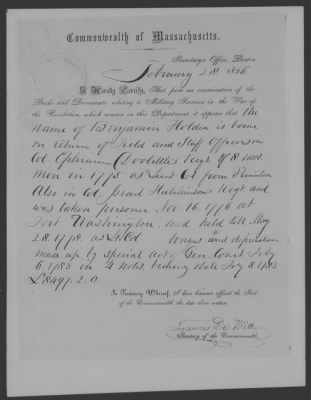 Commonwealth of Massachusetts.
Secretary's Office, Boston,
February 28 1856
I Hereby Certify, That from an examination of the
Books and Documents relating to Military Services in the War of
the Revolution, which remain in this Department, it appears that the
name of Benjamin Holden is borne
on return of Field and Staff Officers in
Col Ephraim Doolittle's Regt of 8 mos
men in 1775 as Lieut Col from Princeton
Also in Col Israel Hutchinson's Regt and
was taken prisoner Nov 16, 1776 at
Fort Washington, and held till May
28, 1778, as Lt Col. and depreciation
made up by special Act of Gen. Court July
6, 1783 in 4 Notes, bearing date July 8 1783
£8497.2.0.
In Testimony Whereof, I have hereunto affixed the Seal
of the Commonwealth, the date above written.
Francis De Witt
Secretary of the Commonwealth.